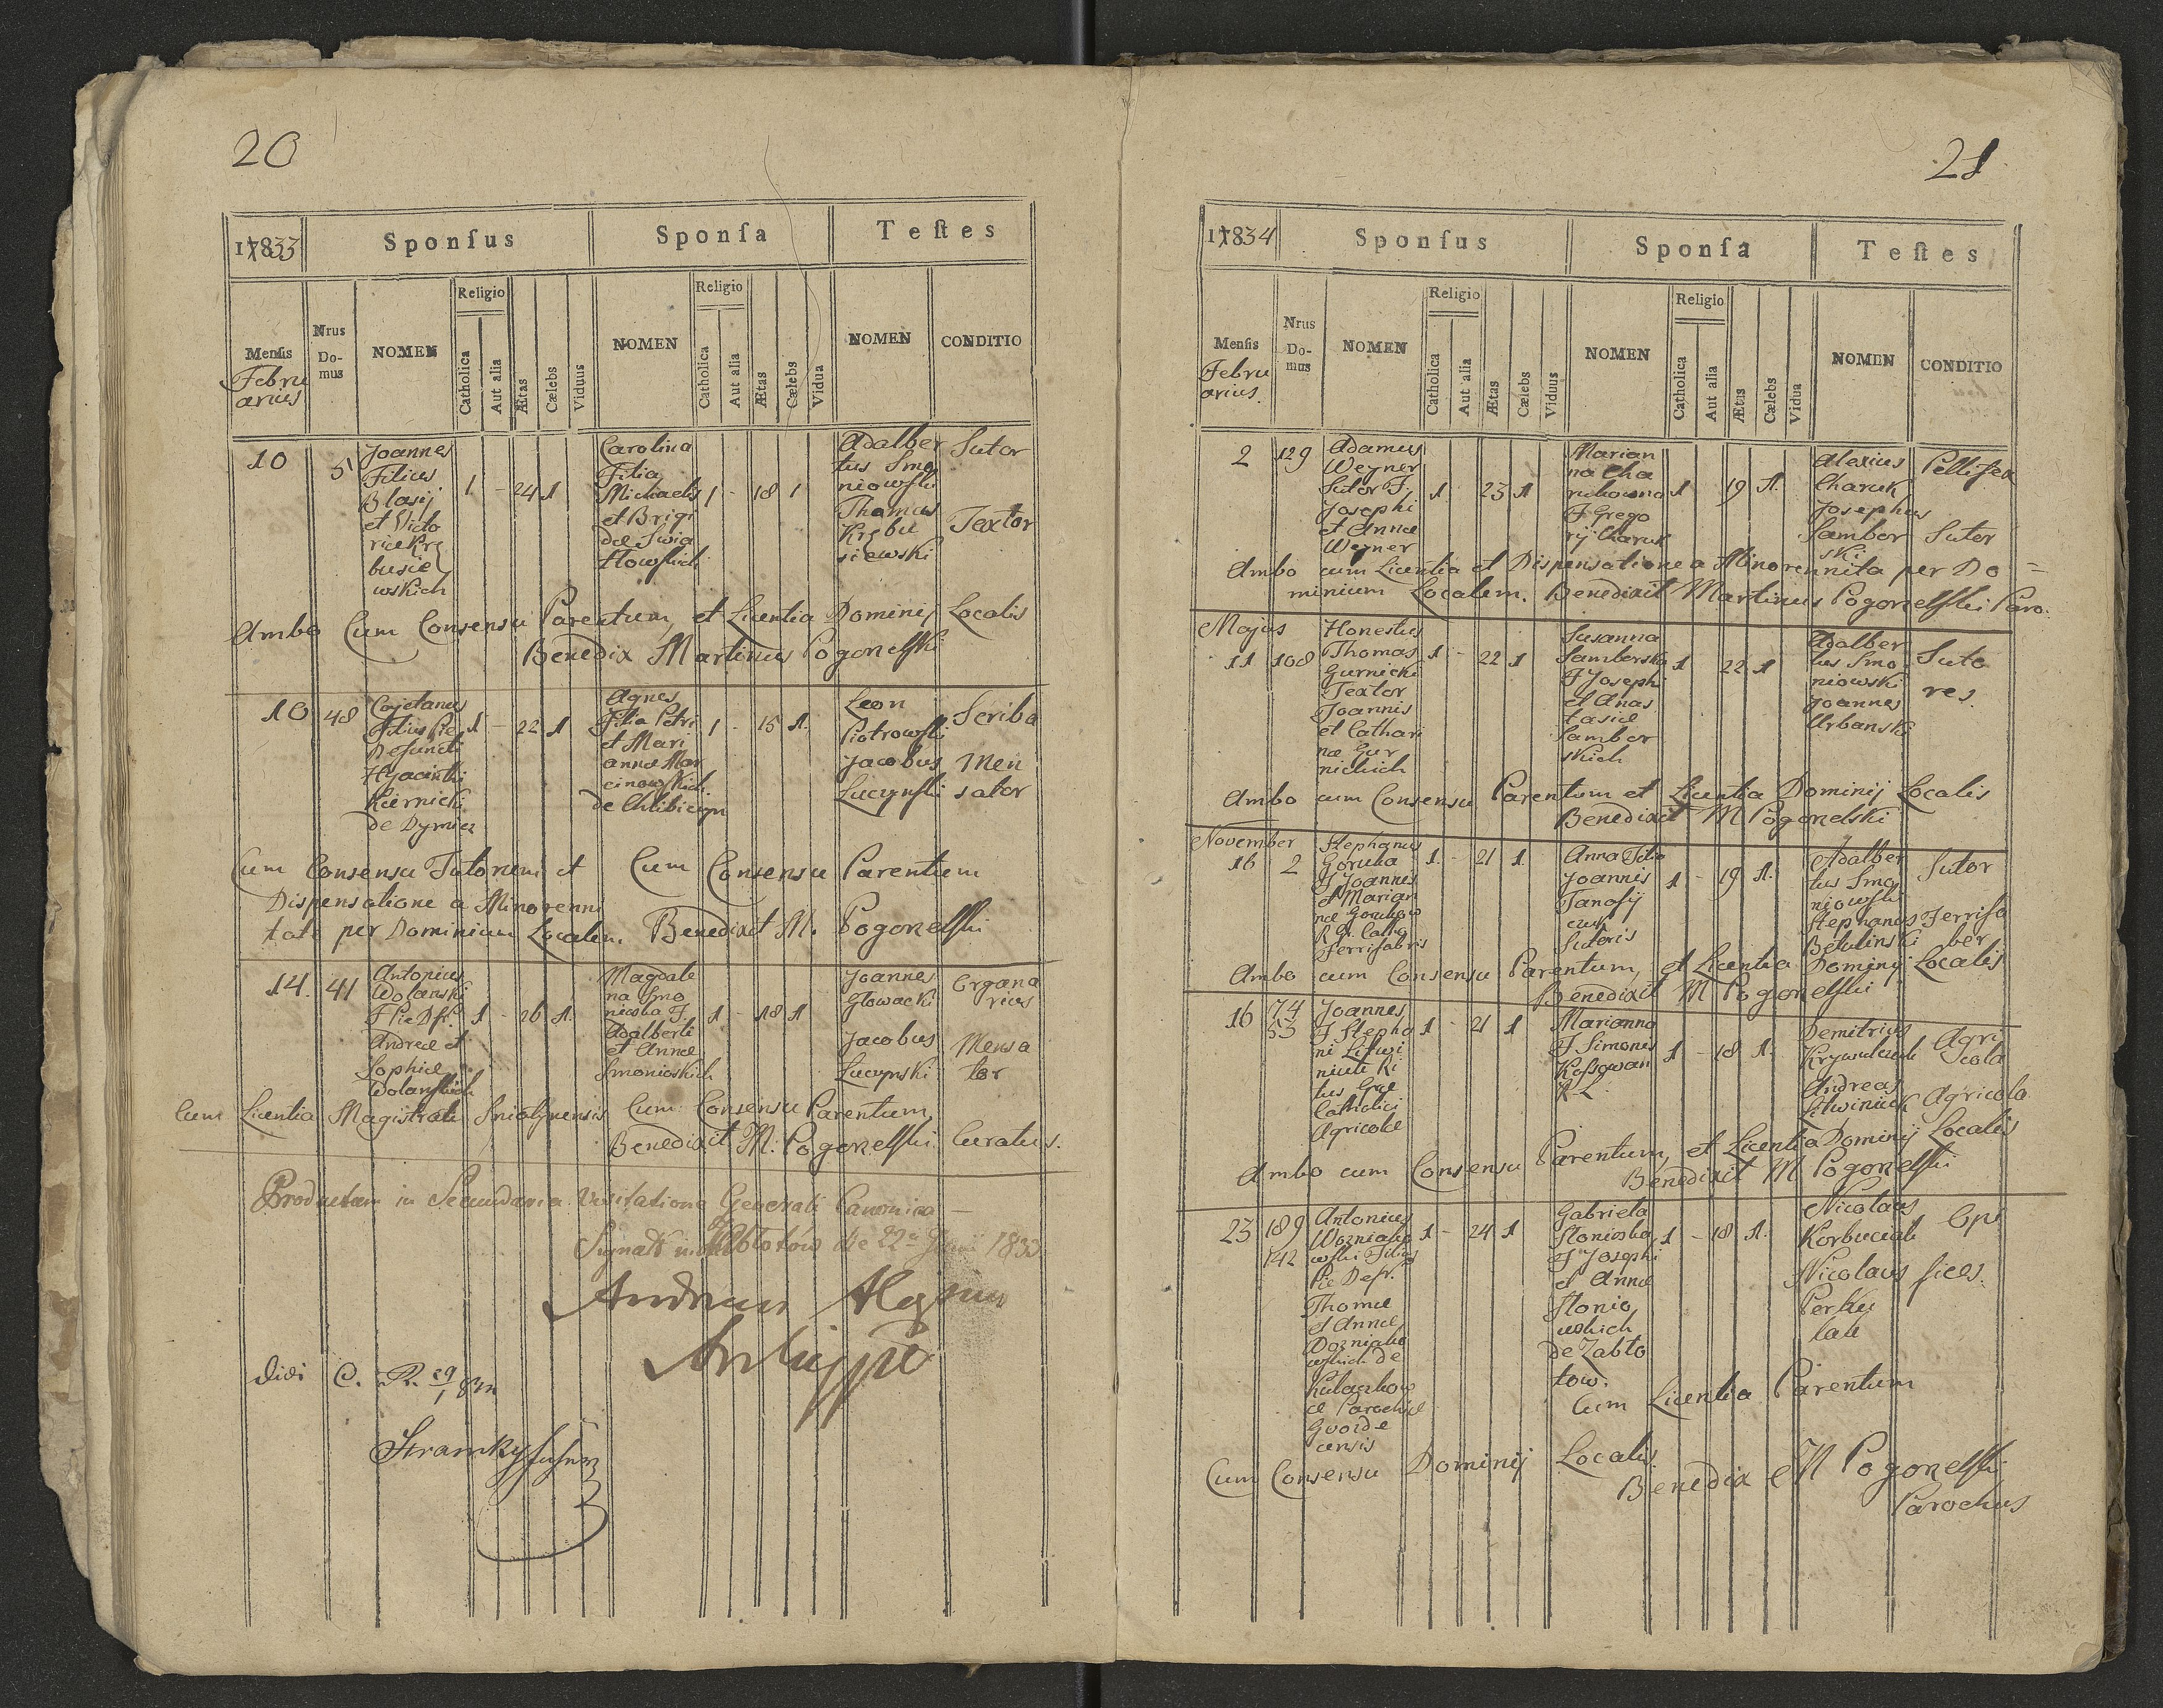 20
17833
Sponſus
Sponſa
Teſtes
Menſis
Febru
arius
Nrus
Do-
mus
NOMEN
Religio
Catholica
Aut alia
Ætas
Cælebs
Viduus
NOMEN
Religio
Catholica
Aut alia
Ætas
Cælebs
Vidua
NOMEN
CONDITIO
10
51
Joannes
Filius
Blasij
et Victo
riæ Krę
busie
wskich
1 - 24 1
Carolina
Filia
Michaelis
et Brigi
dæ Swia
tkowskich
1 - 18 1
Adalber
tus Smo
niowski
Thomas
Krębu
siewski
Sutor
Textor
Ambo Cum Consensu Parentum, et Licentia Dominij Localis
Benedix Martinus Pogonelski
10 48
Cajetanus
Filius Pie
Defuncti
Hyacinthi
Kiernicki
de
1 - 22 1
Agnes
Filia Petri
et Mari
annæ Mar
cinowskich
de
1 - 15 1.
Leon
Piotrowski
Jacobus
Lucynski
Scriba
Men
sator
Cum Consensu Tutorum et
Dispensatione a Minorenni
tate per Dominium Localem.
Cum Consensu Parentum
Benedixit M. Pogonelski
14. 41
Antonius
Wolanski
F Pie Df.
Andreæ et
Sophiæ
Wolanskich
1 - 26 1.
Magdale
na Smo
niowska F.
Adalberti
et Annæ
Smonioskich
1 - 18 1
Joannes
Głowacki
Jacobus
Lucynski
Organa
rius
Mensa
tor
Cum Licentia Magistrati Sniatynensis Cum Consensu Parentum
Benedixit M. Pogonelski Curatus.
Productum in Secundaria Visitatione Generali Canonica
die 22 Junii 1833
Andreas
Vidi C. R.
21
17834
Sponſus
Sponſa
Teſtes
Menſis
Febru
arius.
Nrus
Do-
mus
NOMEN
Religio
Catholica
Aut alia
Ætas
Cælebs
Viduus
NOMEN
Religio
Catholica
Aut alia
Ætas
Cælebs
Vidua
NOMEN
CONDITIO
2 129
Adamus
Weyner
Sutor F.
Josephi
et Annæ
Weyner
1 23 1
Marian
na Cha
rukowna
F Grego
rij Charuk
1 19 1.
Alexius
Charuk
Josephus
Sambor
ski
Pellifex
Sutor
Ambo cum Licentia et Dispensatione a Minorennita per Do =
minium Localem. Benedixit Martinus Pogonelski Paro.
Majus
11 108
Honestus
Thomas
Gurnicki
Textor
Joannis
et Cathari
næ Gur
nickich
1 - 22 1
Susanna
Samborska
F Josephi
et Anas
tasiæ
Sambor
skich
1 22 1
Adalber
tus Smo
niowski
Joannes
Urbanski
Suto
res.
Ambo cum Consensu Parentum et Licentia Dominij Localis
Benedixit M Pogonelski
November
16 2
Stephanus
F Joannes
et Marian
næ
Ferrifabris
1. - 21 1.
Anna Filia
Joannis
Tanasij
czuk
Sutoris
1 - 19 1.
Adalber
tus Smo
niowski
Stephanus
Betulinski
Sutor
Ferrifa
ber
Ambo cum Consensu Parentum, et Licentia Dominij Localis
Benedixit M Pogonelski
16 74
53
Joannes
F Stepha
ni Litwi
niuk Ri
tus Græ
Catholici
Agricolæ
1 - 21 1
Marianna
F Simonis
Koßowan
R L
1 - 18 1.
Demitrius
Andreas
Litwiniuk
Agri
cola
Agricola
Ambo cum Consensu Parentum, et Licentia Dominij Localis
Benedixit M Pogonelski
23 189
142
Antonius
Wozniako
wski Filius
Pie Def.
Thomæ
et Annæ
Wozniako
wskich de
Kulaczkow
ce Parochiæ
Gvozde
censis
1 - 24 1
Gabriela
Stonioska
F Josephi
et Annæ
Stonio
wskich
de Zabło
tow.
1 - 18 1.
Nicolaus
Korbuciak
Nicolaus
Perku
lab
Opi
fices.
Cum Licentia Parentum
Cum Consensu Dominij Localis
Benedix M Pogonelski
Parochus